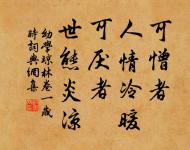 可憎者
人情冷暖
可厌者
世態炎凉
幼學瓊林卷一歲
時詞典網集